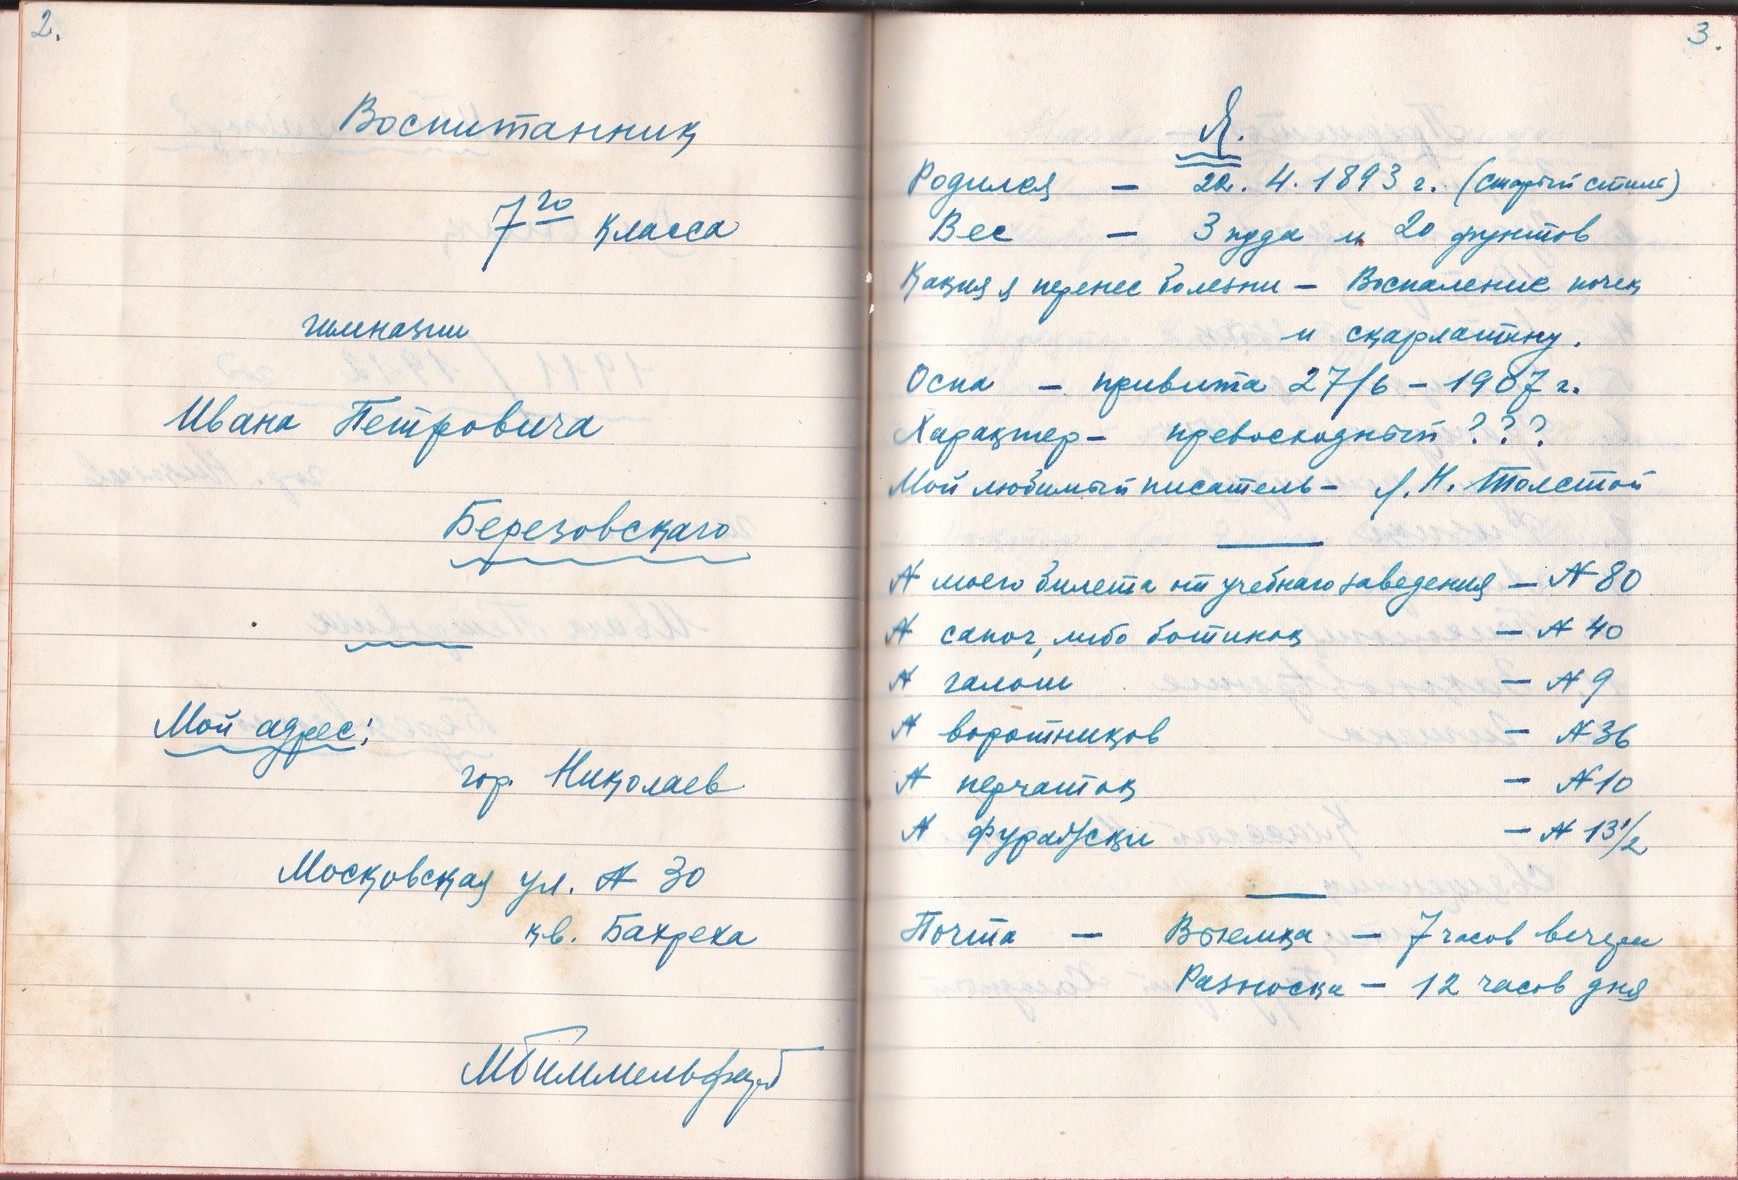 2.
Воспитанник
7го класса
гимназии
Ивана Петровича
Березовскаго
Мой адрес:
гор. Николаев
Московская ул. № 30
кв. Бахреха
3.
Я.
Родился — 22. 4. 1893 г. (старый стиль)
Вес — 3 пуда и 20 фунтов
Какия я перенес болезни — Воспаление почек
и скарлатину.
Оспа — привита 27/6 — 1907 г.
Характер — превосходный ? ? ?
Мой любимый писатель — Л. Н. Толстой
№ моего билета от учебнаго заведения — № 80
№ сапог, либо ботинок — № 40
№ галош — № 9
№ воротников — № 36
№ перчаток — № 10
№ фуражки — № 13 1/2
Почта — Выемка — 7 часов вечера
Разноска — 12 часов дня